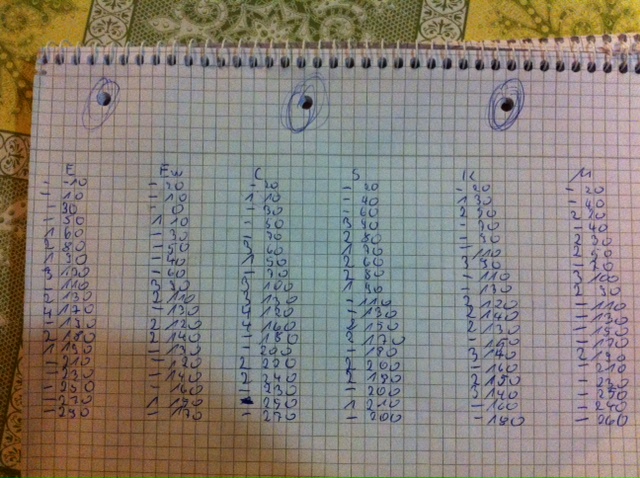 E Ew C S K M
- -10 - 20 - 20 - 20 - 20 - 20
- 10 - 10 1 10 - 40 1 30 - 40
- 30 - 0 - 30 - 60 2 50
- 50 1 10 - 50 3 90 - 70 - 40
1 60 - 30 - 70 2 80 - 90 2 30
2 80 - 50 3 60 1 70 3 110 2 50
1 90 - 40 1 50 2 60 - 70
- 60 - 70 2 80 - 110 3 100
- 110 3 90 3 100 1 90 - 130 2 90
2 130 2 110 3 130 - 110 2 120 - 110
4 170 - 130 4 120 - 130 2 140 - 130
2 120 4 160 2 150 2 130 - 150
2 180 2 140 - 180 2 170 - 150 - 170
1 190 - 130 - 200 - 180 3 140 2 190
- 210 2 220 2 200 - 160 - 210
- 230 2 240 2 190 2 150 - 230
- 250 - 160 - 230 - 200 3 140 - 250
- 270 1 150 250 1 210 - 160 - 240
- 290 - 170 - 270 - 200 - 180 - 260